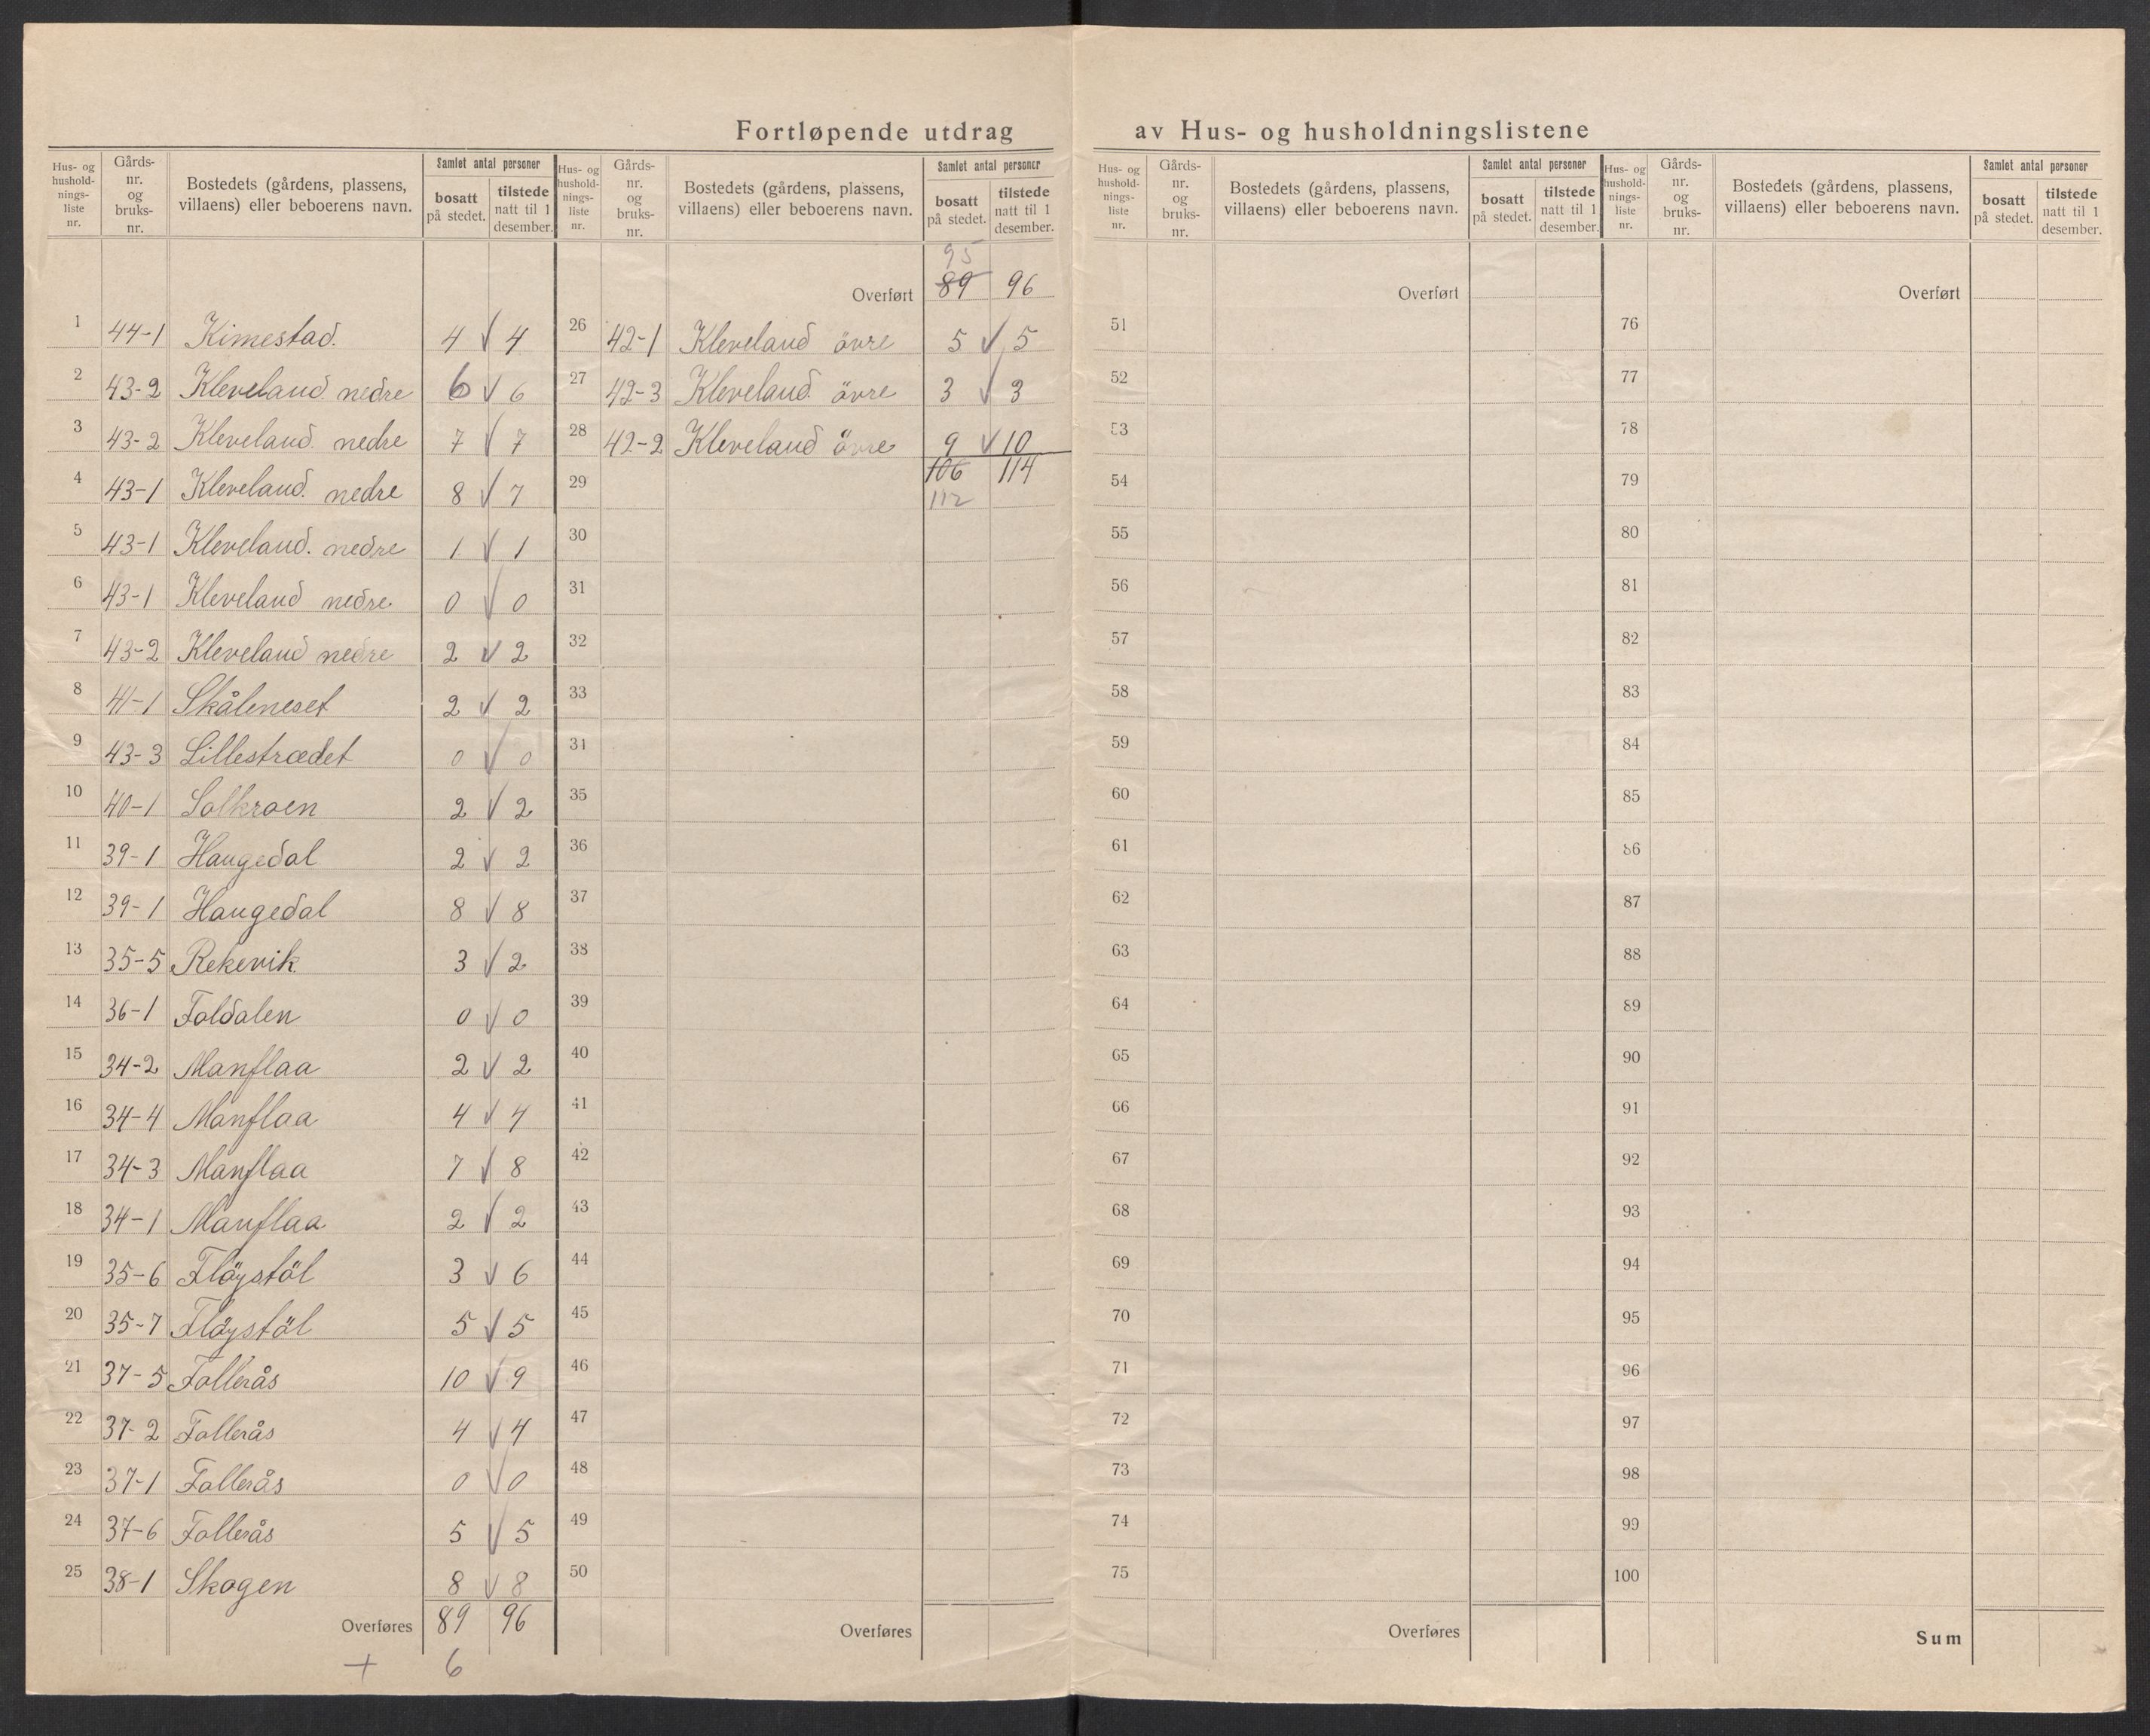 Fortløpende utdrag av Hus- og husholdningslistene
Hus- og hushold-nings-liste nr. | Gårds-nr. og bruks-nr. | Bostedets (gårdens, plassens, villaens) eller beboerens navn. | Samlet antal personer | bosatt på stedet. | tilstede natt til 1 desember.
1 44-1 Kimestad. 4 √ 4
2 43-2 Kleveland nedre 6 √ 6
3 43-2 Kleveland. nedre 7 √ 7
4 43-1 Kleveland. nedre 8 √ 7
5 43-1 Kleveland. nedre 1 √ 1
6 43-1 Kleveland nedre 0 √ 0
7 43-2 Kleveland nedre 2 √ 2
8 41-1 Skåleneset 2 √ 2
9 43-3 Lillestrædet 0 √ 0
10 40-1 Solkroen 2 √ 2
11 39-1 Haugedal 2 √ 2
12 39-1 Haugedal 8 √ 8
13 35-5 Rekevik 3 √ 2
14 36-1 Foldalen 0 √ 0
15 34-2 Manflaa 2 √ 2
16 34-4 Manflaa 4 √ 4
17 34-3 Manflaa 7 √ 8
18 34-1 Manflaa 2 √ 2
19 35-6 Flöystöl 3 √ 6
20 35-7 Flöystöl 5 √ 5
21 37-5 Follerås 10 √ 9
22 37-2 Follerås 4 √ 4
23 37-1 Follerås 0 √ 0
24 37-6 Follerås 5 √ 5
25 38-1 Skogen 8 √ 8
Overføres 89 96
+ 6
Hus- og hushold-nings-liste nr. | Gårds-nr. og bruks-nr. | Bostedets (gårdens, plassens, villaens) eller beboerens navn. | Samlet antal personer | bosatt på stedet. | tilstede natt til 1 desember.
95
Overført 89 96
26 42-1 Kleveland övre 5 √ 5
27 42-3 Kleveland. övre 3 √ 3
28 42-2 Kleveland övre 9 √ 10
29 106 114
112
30
31
32
33
31
35
36
37
38
39
40
41
42
43
44
45
46
47
48
49
50
Overføres
Hus- og hushold-nings-liste nr. | Gårds-nr. og bruks-nr. | Bostedets (gårdens, plassens, villaens) eller beboerens navn. | Samlet antal personer | bosatt på stedet. | tilstede natt til 1 desember.
Overført
51
52
53
54
55
56
57
58
59
60
61
62
63
64
65
66
67
68
69
70
71
72
73
74
75
Overføres
Hus- og hushold-nings-liste nr. | Gårds-nr. og bruks-nr. | Bostedets (gårdens, plassens, villaens) eller beboerens navn. | Samlet antal personer | bosatt på stedet. | tilstede natt til 1 desember.
Overført
76
77
78
79
80
81
82
83
84
85
86
87
88
89
90
91
92
93
94
95
96
97
98
99
100
Sum